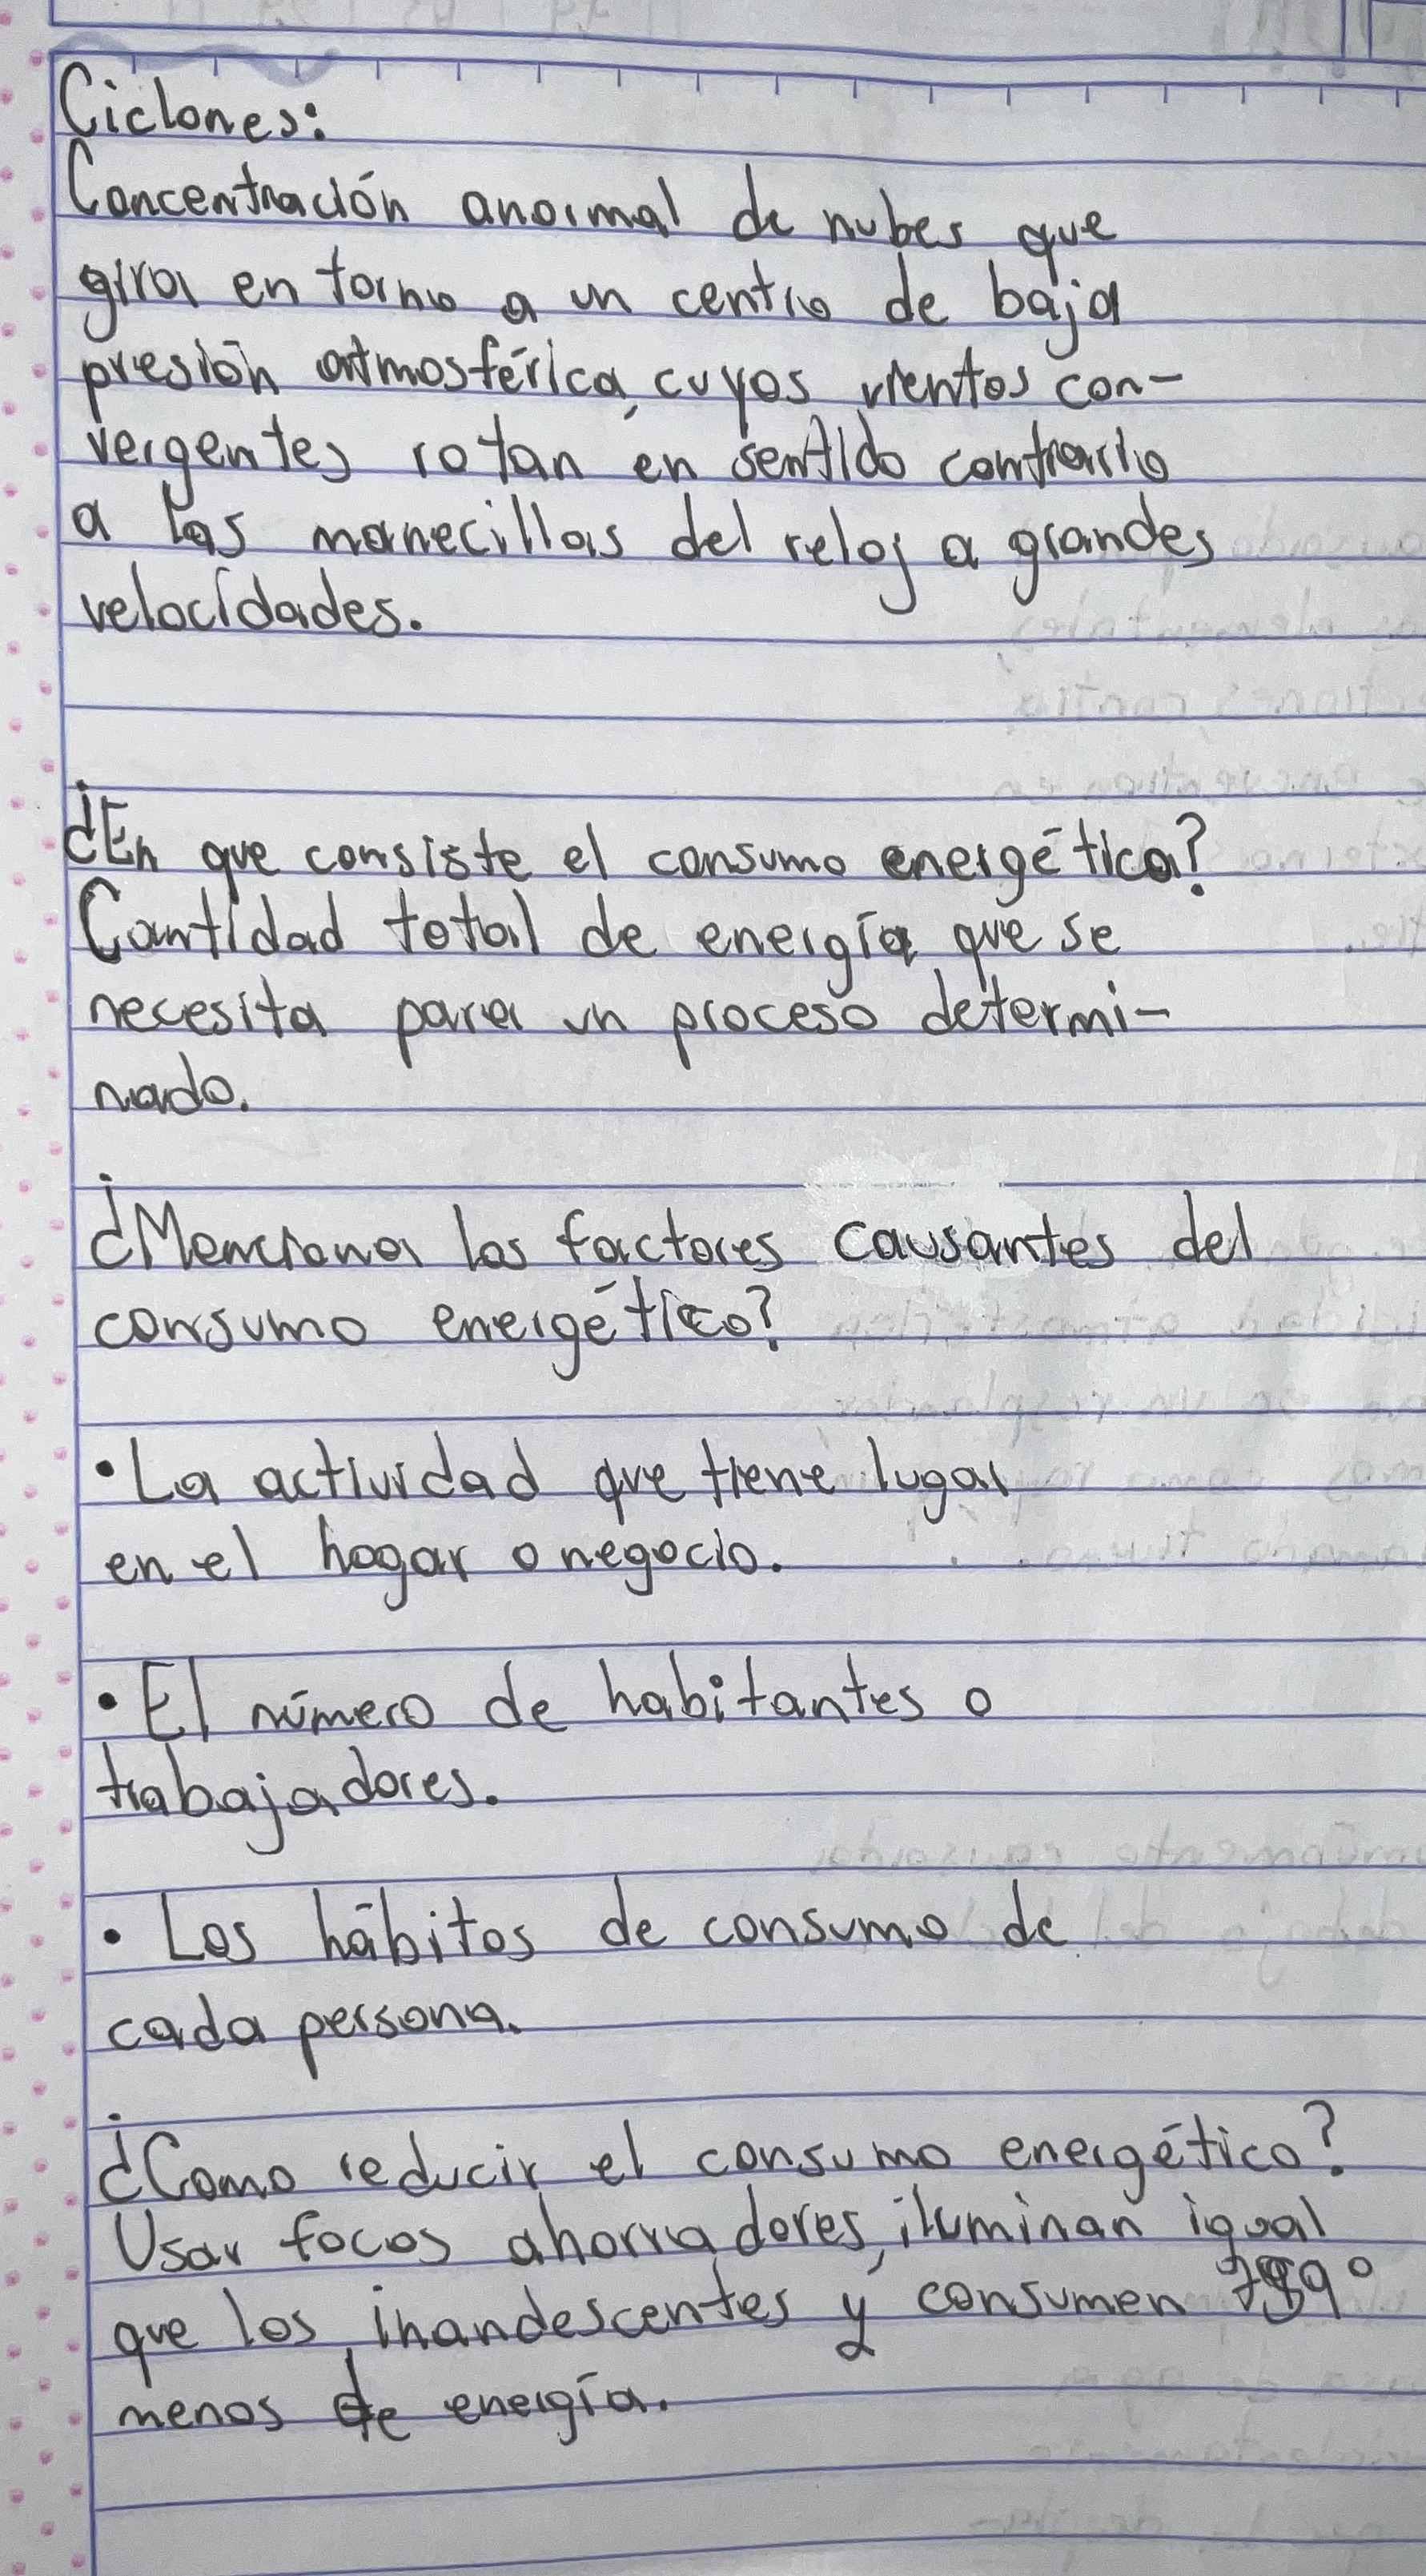 Ciclones:
Concentración anormal de nubes que
gira en torno a un centro de baja
presión atmosférica, cuyos vientos con-
vergentes rotan en sentido contrario
a las manecillas del reloj a grandes
velocidades.
¿En que consiste el consumo energético?
Cantidad total de energía que se
necesita para un proceso determi-
nado.
¿Menciona los factores causantes del
consumo energético?
• La actividad que tiene lugar
en el hogar o negocio.
• El número de habitantes o
trabajadores.
• Los hábitos de consumo de
cada persona.
¿Como reducir el consumo energético?
Usar focos ahorradores, iluminan igual
que los inandescentes y consumen
menos de energía.